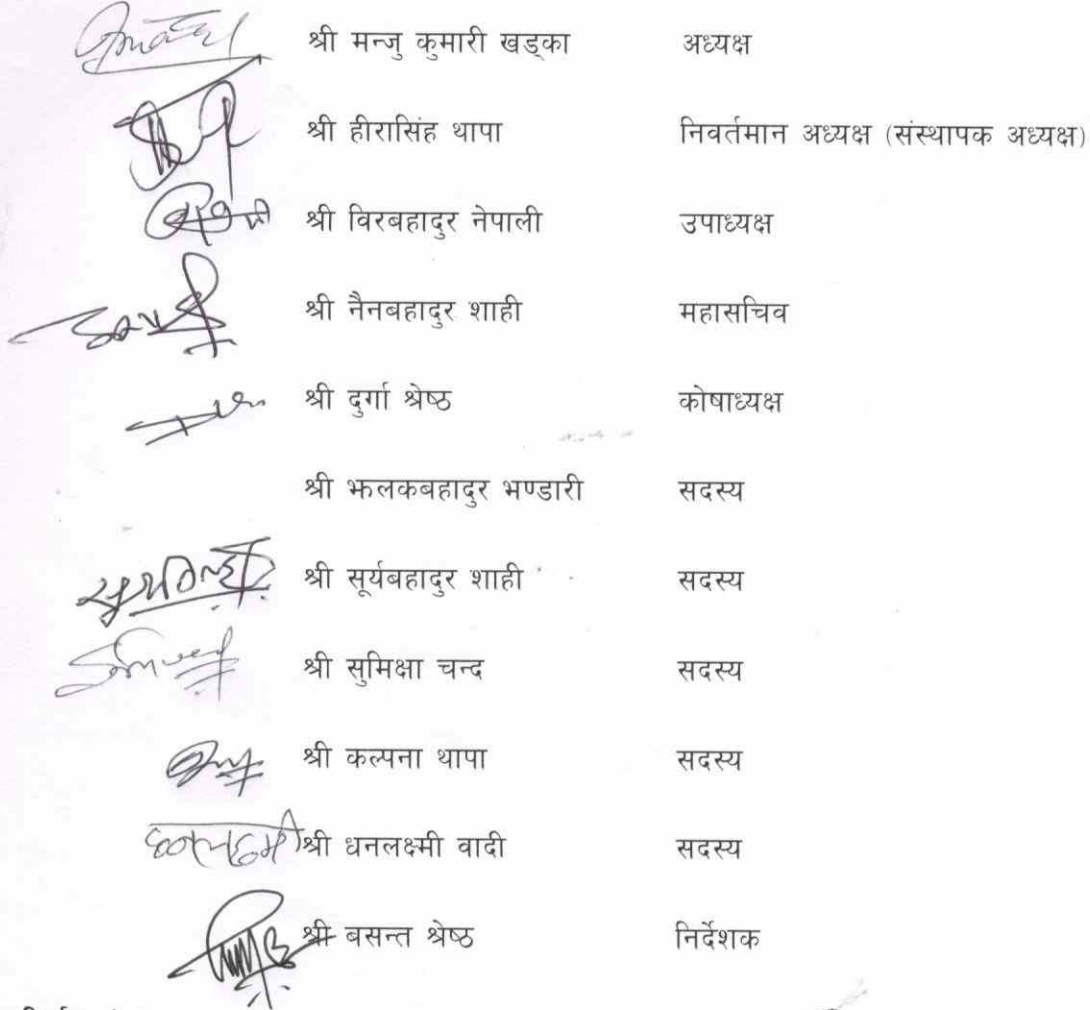 श्री मन्जु कुमारी खड्का अध्यक्ष
श्री हीरासिंह थापा निवर्तमान अध्यक्ष (संस्थापक अध्यक्ष)
श्री विरबहादुर नेपाली उपाध्यक्ष
श्री नैनबहादुर शाही महासचिव
श्री दुर्गा श्रेष्ठ कोषाध्यक्ष
श्री झलकबहादुर भण्डारी सदस्य
श्री सूर्यबहादुर शाही सदस्य
श्री सुमिक्षा चन्द सदस्य
श्री कल्पना थापा सदस्य
धनलक्ष्मी श्री धनलक्ष्मी वादी सदस्य
श्री बसन्त श्रेष्ठ निर्देशक